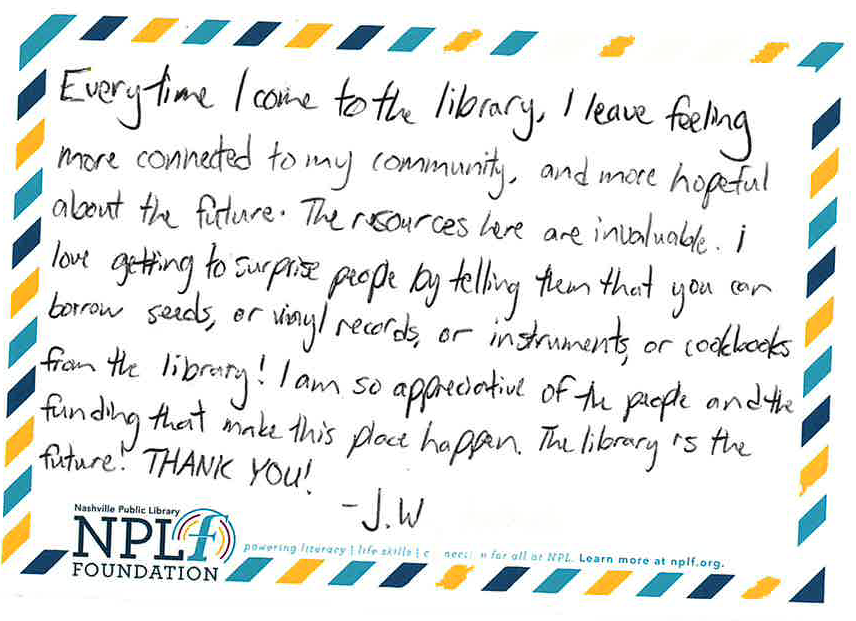 Everytime I come to the library, I leave feeling
more connected to my community, and more hopeful
about the future. The resources here are invaluable. i
love getting to surprise people by telling them that you can
borrow seeds, or vinyl records, or instruments, or cookbooks
from the library! I am so appreciative of the people and the
funding that make this place happen. The library is the
future! THANK YOU!
-J.W
Nashville Public Library
NPLf
FOUNDATION
powering literacy | life skills | c nec n for all at NPL. Learn more at nplf.org.